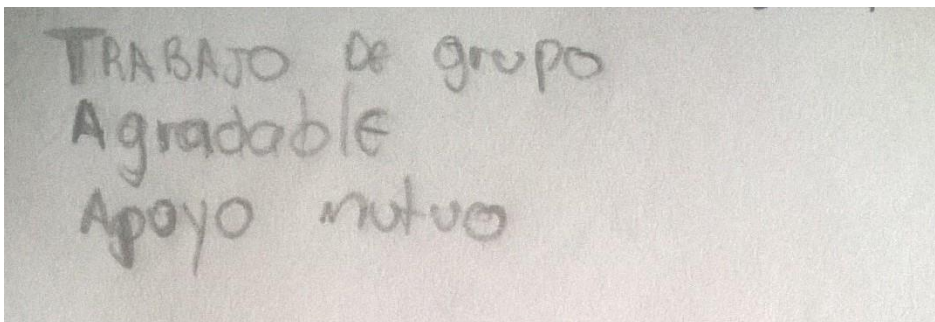 TRABAJO De grupo
AgradablE
Apoyo mutuo